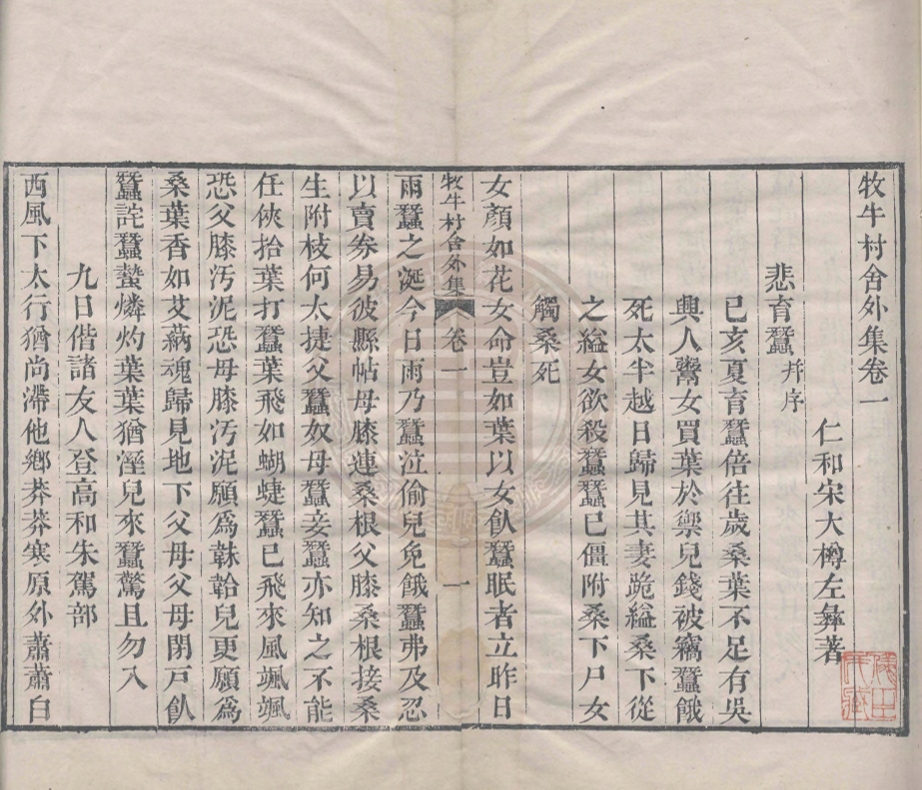 牧牛村舍外集卷一
仁和宋大樽左彝著
悲育蠶并序
已亥夏育蠶倍往歲桑葉不足有吳
興人鬻女買葉於禦兒錢被竊蠶餓
死太半越日歸見其妻跪縊桑下從
之縊女欲殺蠶蠶已僵附桑下尸女
觸桑死
女顏如花女命豈如葉以女飤蠶眠者立昨日
牧牛村舍外集 卷一 一
雨蠶之涎今日雨乃蠶泣偷兒免餓蠶弗及忍
以賣券易彼縣帖母膝連桑根父膝桑根接桑
生附枝何太捷父蠶奴母蠶妾蠶亦知之不能
任俠拾葉打蠶葉飛如蝴蜨蠶已飛來風颯颯
恐父膝汚泥恐母膝汚泥願爲韎韐兒更願爲
桑葉香如艾蒳魂歸見地下父母父母閉戸飤
蠶詫蠶蟄燐灼葉葉猶溼兒來蠶驚且勿入
九日偕諸友人登高和朱駕部
西風下太行猶尚滯他鄉莽莽寒原外蕭蕭白